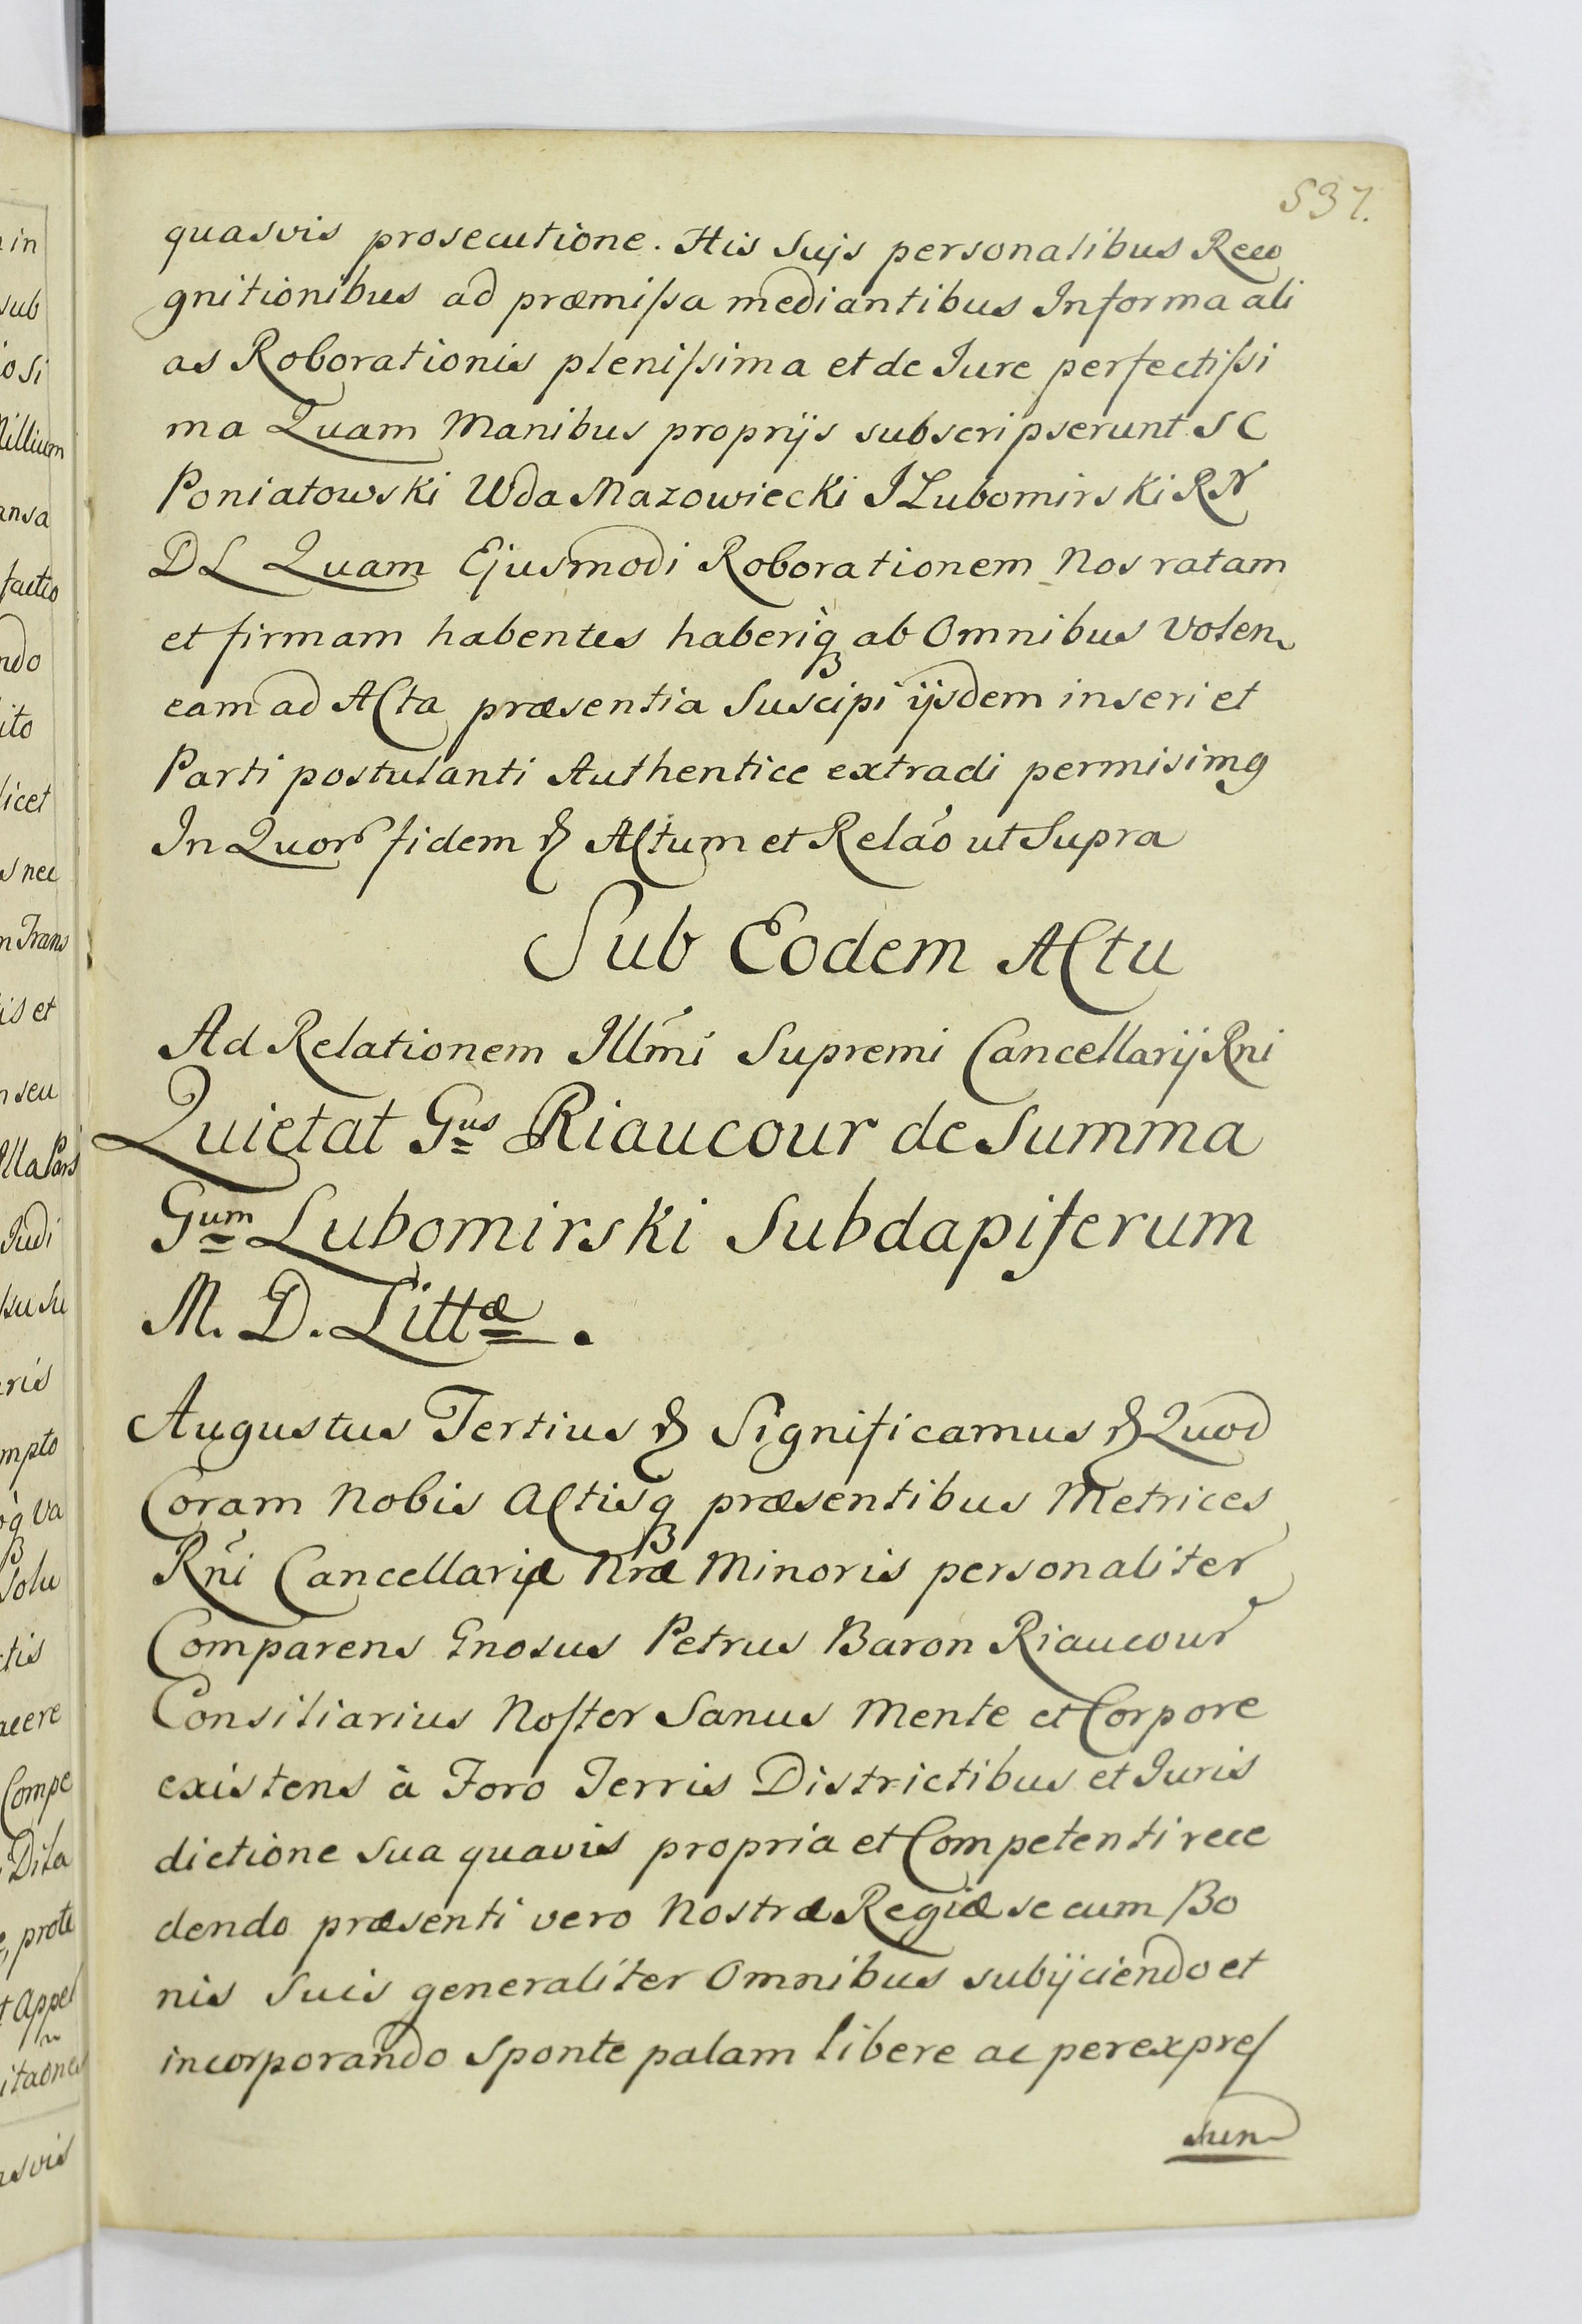 537.
quasvis prosecutione. His Suijs personalibus Reco
gnitionibus ad præmissa mediantibus In forma ali
as Roborationis plenissima et de Jure perfectissi
ma Quam Manibus proprijs subscripserunt S C
Poniatowski Wda Mazowiecki J Lubomirski R N
D L Quam Ejusmodi Roborationem Nos ratam
et firmam habentes haberiq ab Omnibus volen
eam ad Acta præsentia Suscipi ijsdem inseri et
Parti postulanti Authentice extradi permisimq
In Quor fidem & Actum et Relao ut Supra
Sub Eodem Actu
Ad Relationem Illmi Supremi Cancellarij Rni
Quietat Gus Riaucour de Summa
Gum Lubomirski Subdapiferum
M. D. Littæ.
Augustus Tertius & Significamus & Quod
Coram Nobis Actisq præsentibus Metrices
Rni Cancellariæ Nræ Minoris personaliter
Comparens Gnosus Petrus Baron Riaucour
Consiliarius Noster Sanus Mente et Corpore
existens à Foro Terris Districtibus et Juris
dictione sua quavis propria et Competenti rece
dendo præsenti vero Nostræ Regiæ se cum Bo
nis Suis generaliter Omnibus subijciendo et
incorporando sponte palam libere ac per expres
sum
in
sub
osi
Millium
ansa
factio
ndo
ito
licet
s nec
m Trans
is et
n seu
Illa Pars
Judi
su su
ris
mpto
oq va
Solu
ctis
acere
Compe
Dila
e, prote
t Appel
itaones
asvis